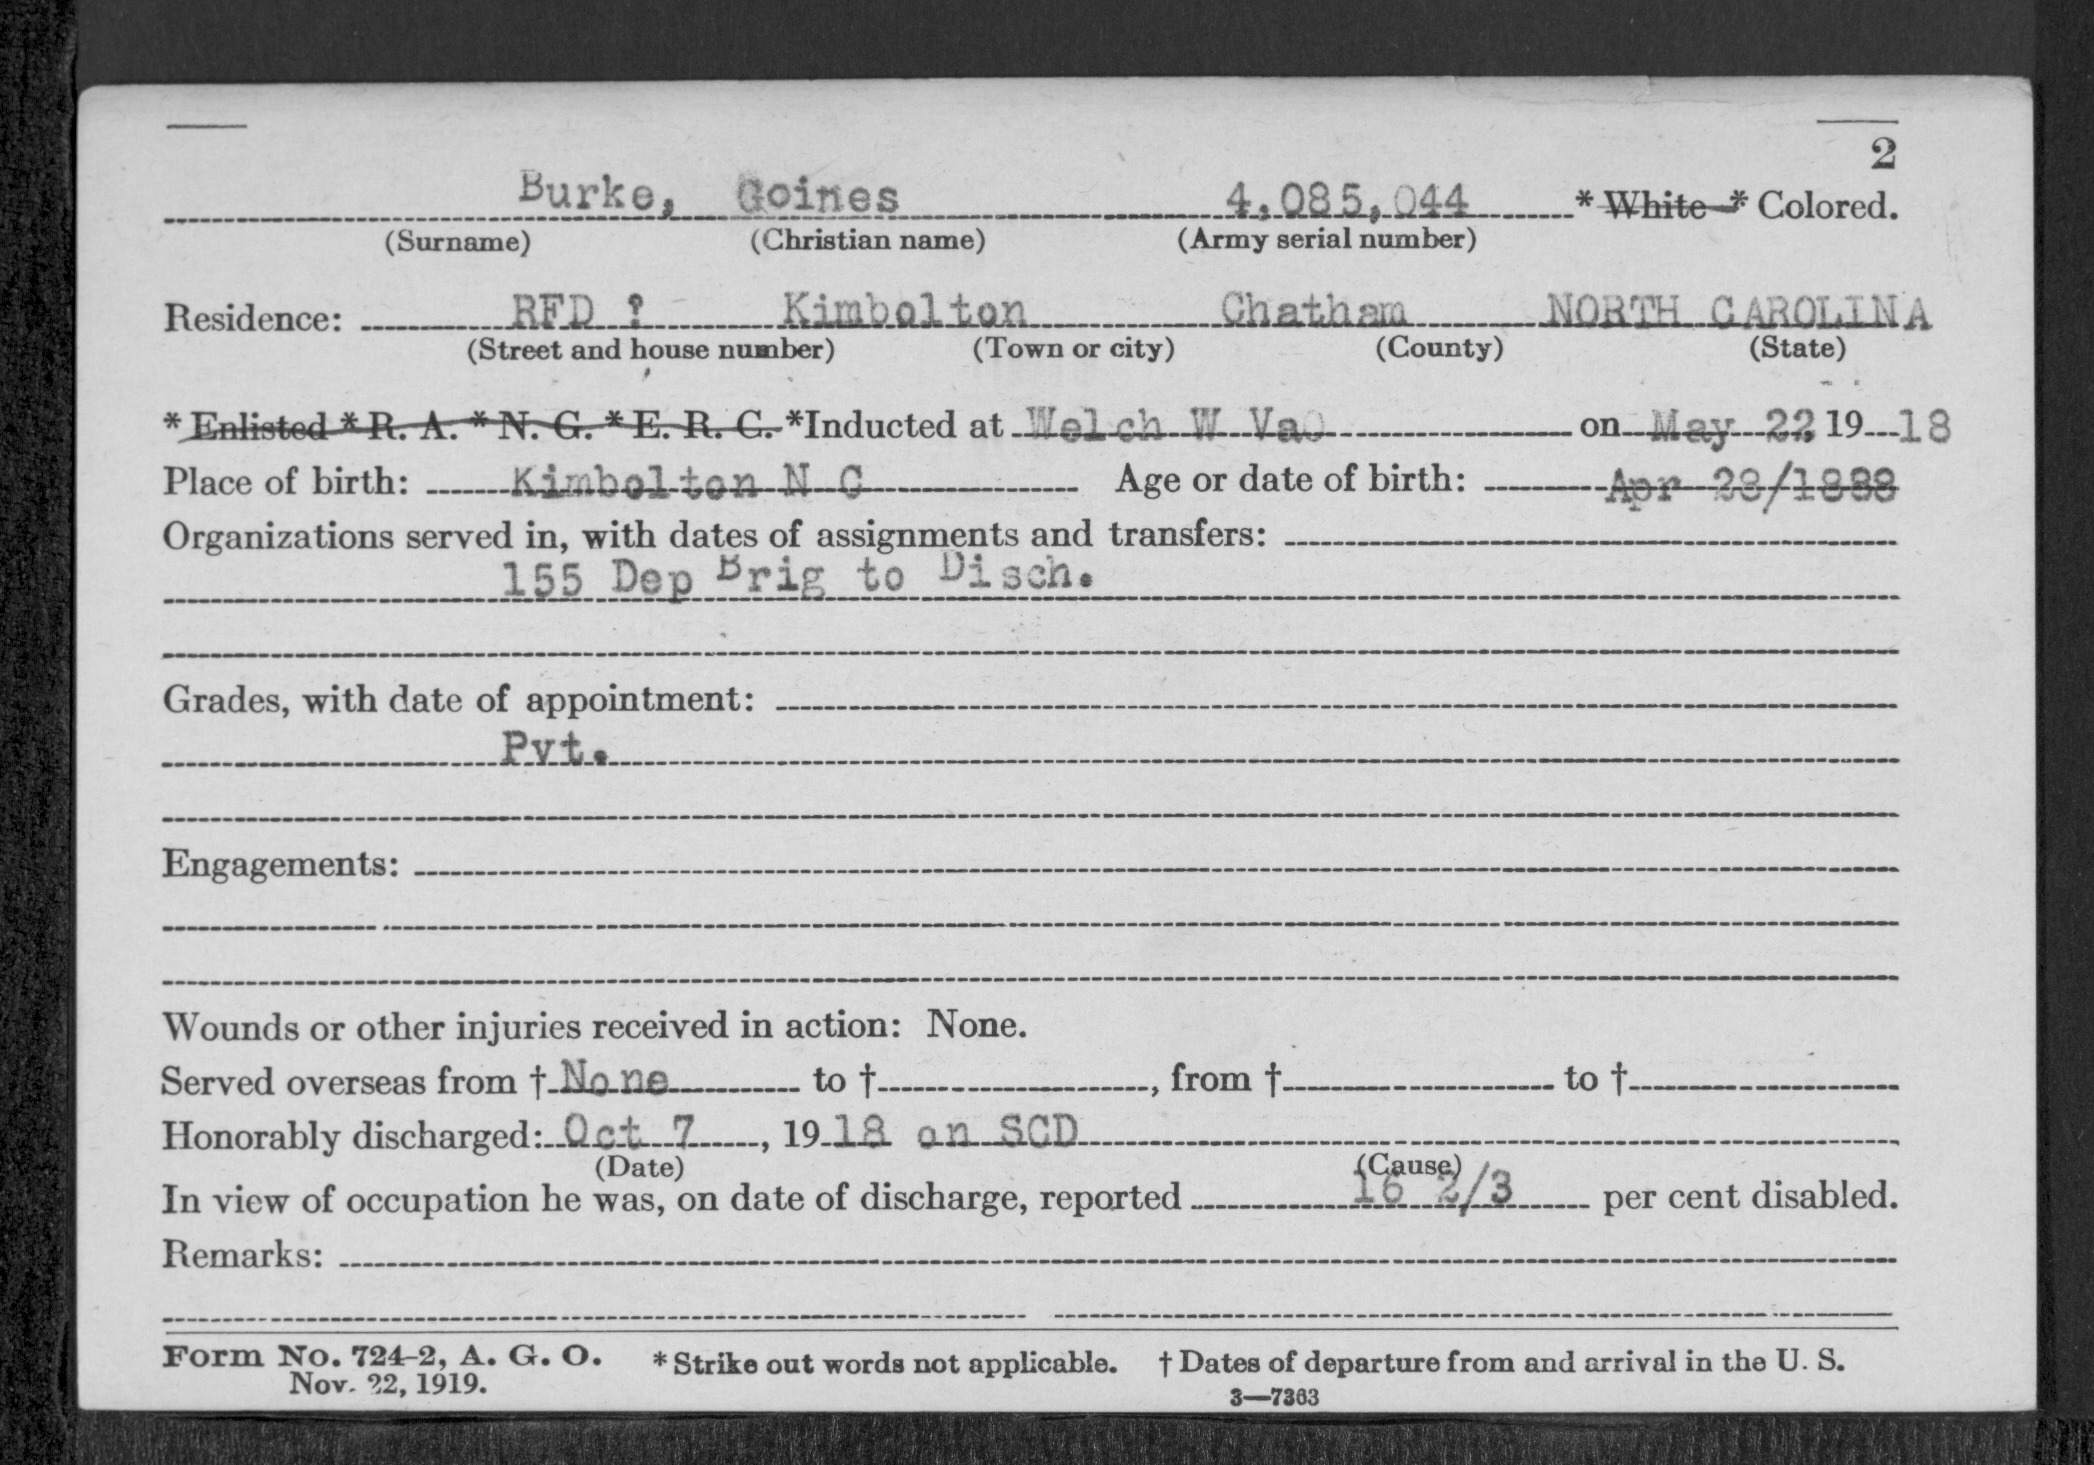 2
Burke, Goines 4,085,044 * White * Colored.
(Surname) (Christian name) (Army serial number)
Residence: RFD ? Kimbolton Chatham NORTH CAROLINA
(Street and house number) (Town or city) (County) (State)
* Enlisted * R. A. * N. G. * E. R. C. *Inducted at Welch W Va on May 22, 19 18
Place of birth: Kimbolton N C Age or date of birth: Apr 28/1888
Organizations served in, with dates of assignments and transfers:
155 Dep Brig to Disch.
Grades, with date of appointment:
Pvt.
Engagements:
Wounds or other injuries received in action: None.
Served overseas from † None to †, from † to †
Honorably discharged: Oct 7, 19 18 on SCD
(Date) (Cause)
In view of occupation he was, on date of discharge, reported 16 2/3 per cent disabled.
Remarks:
Form No. 724-2, A. G. O. * Strike out words not applicable. † Dates of departure from and arrival in the U. S.
Nov. 22, 1919. 3—7363